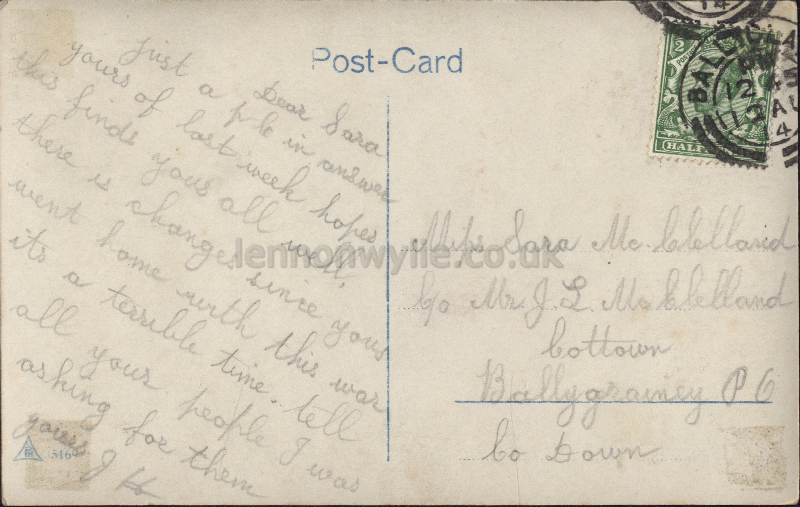 Post-Card
Dear Sara
just a p.c in answer
yours of last week hopes
this finds yous all well,
there is changes since yous
went home with this war
its a terrible time. tell
all your people I was
asking for them
yours J
Miss Sara Mc.Clelland
C/o Mr J L McClelland
Cottown
Ballygrainey P O
Co Down
HALF
BALL
12
AU
14
516
lennonwylie.co.uk